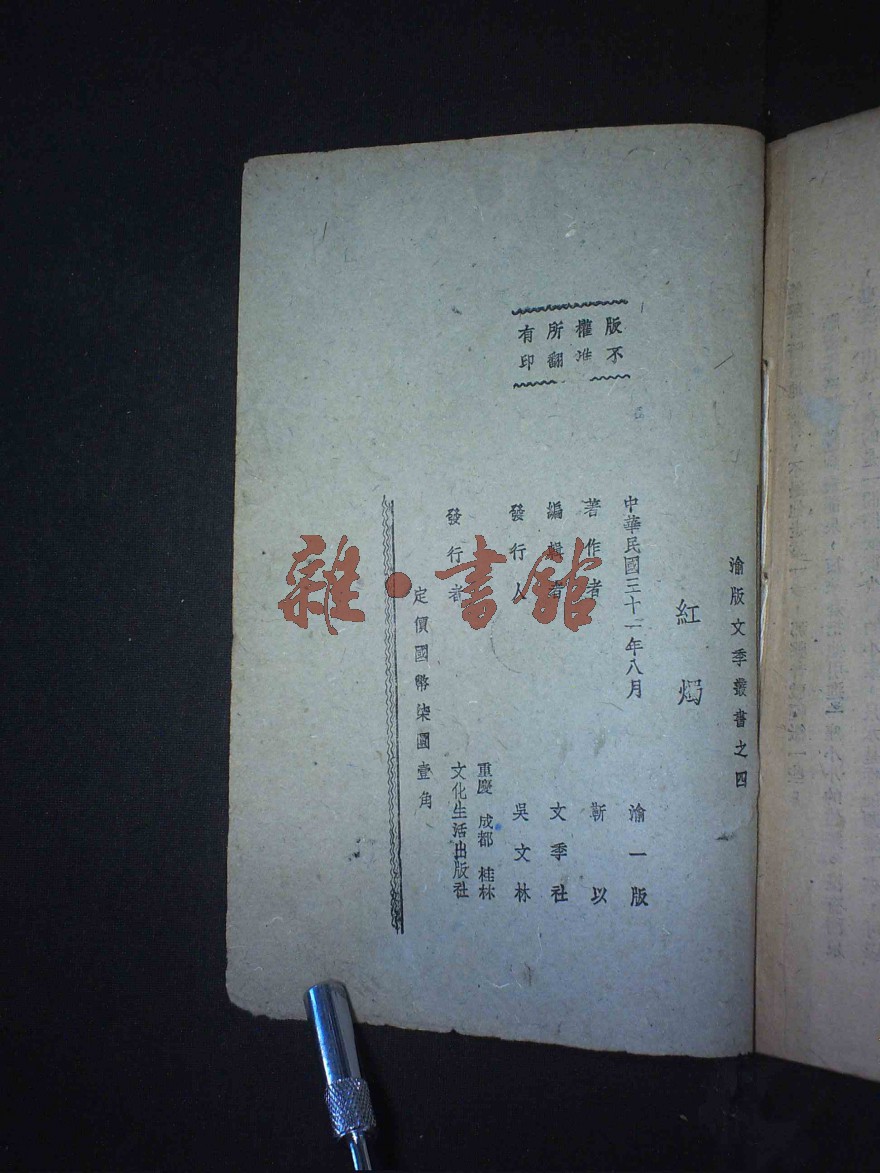 渝版文季叢書之四
紅燭
中華民國三十一年八月 渝一版
著作者 靳以
編輯者 文季社
發行人 吳文林
發行者 重慶 成都 桂林
文化生活出版社
定價國幣柒圓壹角
版權所有
不准翻印
雜·書館